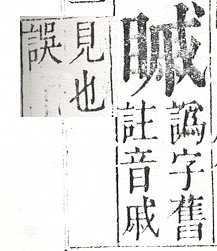 譌字舊
註音戚
見也
誤